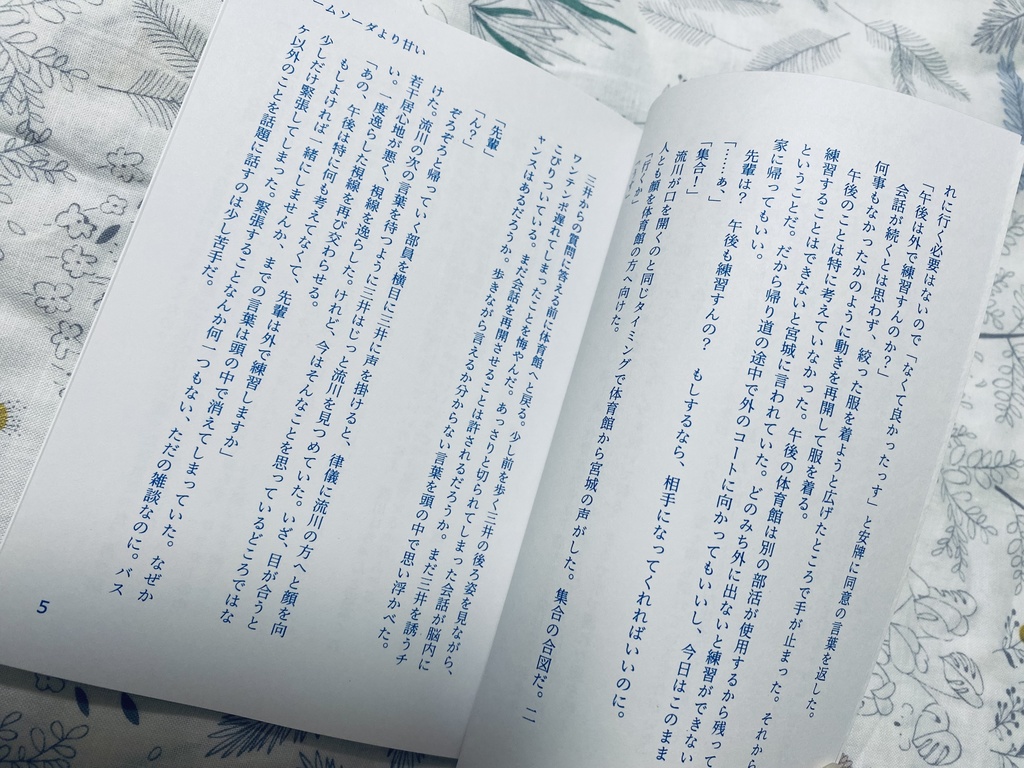 れに行く必要はないので「なくて良かったっす」と安牌に同意の言葉を返した。
「午後は外で練習すんのか?」
会話が続くとは思わず、絞った服を着ようと広げたところで手が止まった。それから
何事もなかったかのように動きを再開して服を着る。
午後のことは特に考えていなかった。午後の体育館は別の部活が使用するから残って
練習することはできないと宮城に言われていた。どのみち外に出ないと練習ができない
ということだ。だから帰り道の途中で外のコートに向かってもいいし、今日はこのまま
家に帰ってもいい。
先輩は? 午後も練習すんの? もしするなら、相手になってくれればいいのに。
「……あ、」
「集合ー!」
流川が口を開くのと同じタイミングで体育館から宮城の声がした。集合の合図だ。二
人とも顔を体育館の方へ向けた。
三井からの質問に答える前に体育館へと戻る。少し前を歩く三井の後ろ姿を見ながら、
ワンテンポ遅れてしまったことを悔やんだ。あっさりと切られてしまった会話が脳内に
こびりついている。まだ会話を再開させることは許されるだろうか。まだ三井を誘うチ
ャンスはあるだろうか。歩きながら言えるか分からない言葉を頭の中で思い浮かべた。
「先輩」
「ん?」
ぞろぞろと帰っていく部員を横目に三井に声を掛けると、律儀に流川の方へと顔を向
けた。流川の次の言葉を待つように三井はじっと流川を見つめていた。いざ、目が合うと
若干居心地が悪く、視線を逸らした。けれど、今はそんなことを思っているどころではな
い。一度逸らした視線を再び交わらせる。
「あの、午後は特に何も考えてなくて、先輩は外で練習しますか」
もしよければ一緒にしませんか、までの言葉は頭の中で消えてしまっていた。なぜか
少しだけ緊張してしまった。緊張することなんか何一つもない、ただの雑談なのに。バス
ケ以外のことを話題に話すのは少し苦手だ。
ームソーダより甘い
5